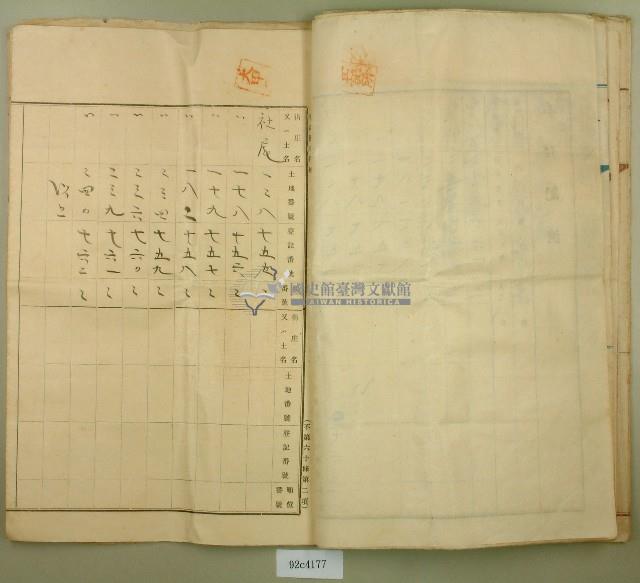 (不第六十條第二項)
街庄名又ハ土名 土地番號 登記番號 順位番號 街庄名又ハ土名 土地番號 登記番號 順位番號
社尾 七五五
〃 一七八 七五六 〻
〃 一七九 七五七 〻
〃 一八二 七五八 〻
〃 二三四 七五九 〻
〃 二三六 七六〇 〻
〃 二三九 七六一 〻
〃 二四〇 七六二 〻
以上
國史館臺灣文獻館
TAIWAN HISTORICA
92c4177